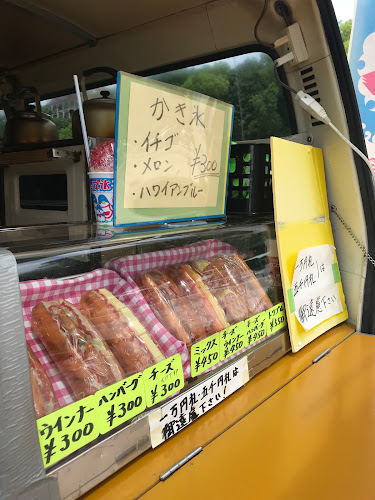 かき氷
・イチゴ
・メロン ¥300
・ハワイアンブルー
一万円札
五千円札は
御遠慮下さい!
ウインナー
¥300
ハンバーグ
¥300
チーズ
¥300
ミックス
¥450
チーズ
ウインナー
¥450
チーズ
ハンバーグ
¥450
トリプル
¥550
一万円札・五千円札は
御遠慮下さい!